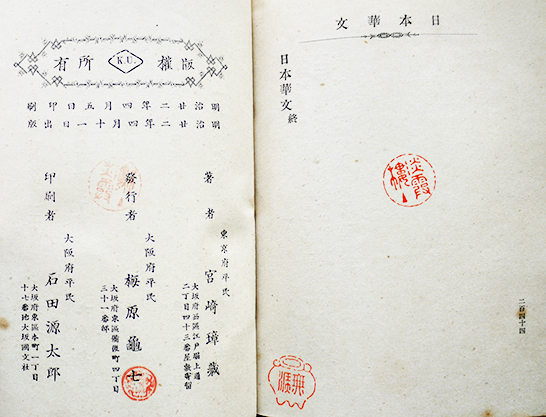 日本華文
日本華文終
二百四十四
版權所有
K.U.
明治廿二年四月五日印刷
明治廿二年四月十一日出版
著者
東京府平民
宮崎璋藏
二丁目四十三番屋敷寄留
發行者
大阪府平民
梅原龜七
大坂府東區備後町四丁目
三十一番邸
印刷者
大阪府平民
石田源太郎
大坂府東區本町一丁目
十七番地大坂國文社